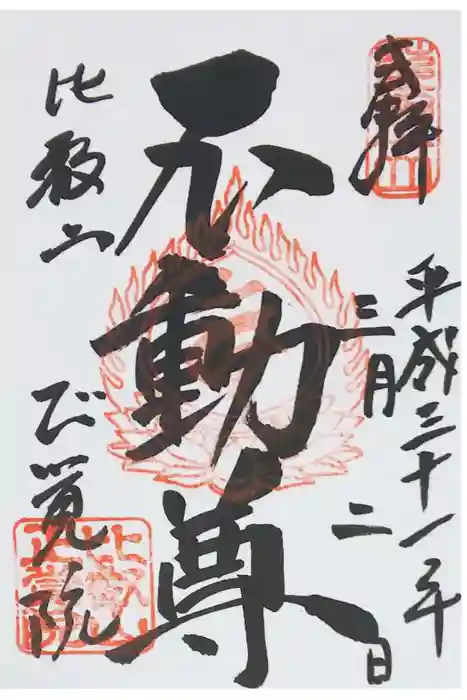 奉拝
平成三十一年
三月
二日
不動尊
比叡山
正覚院